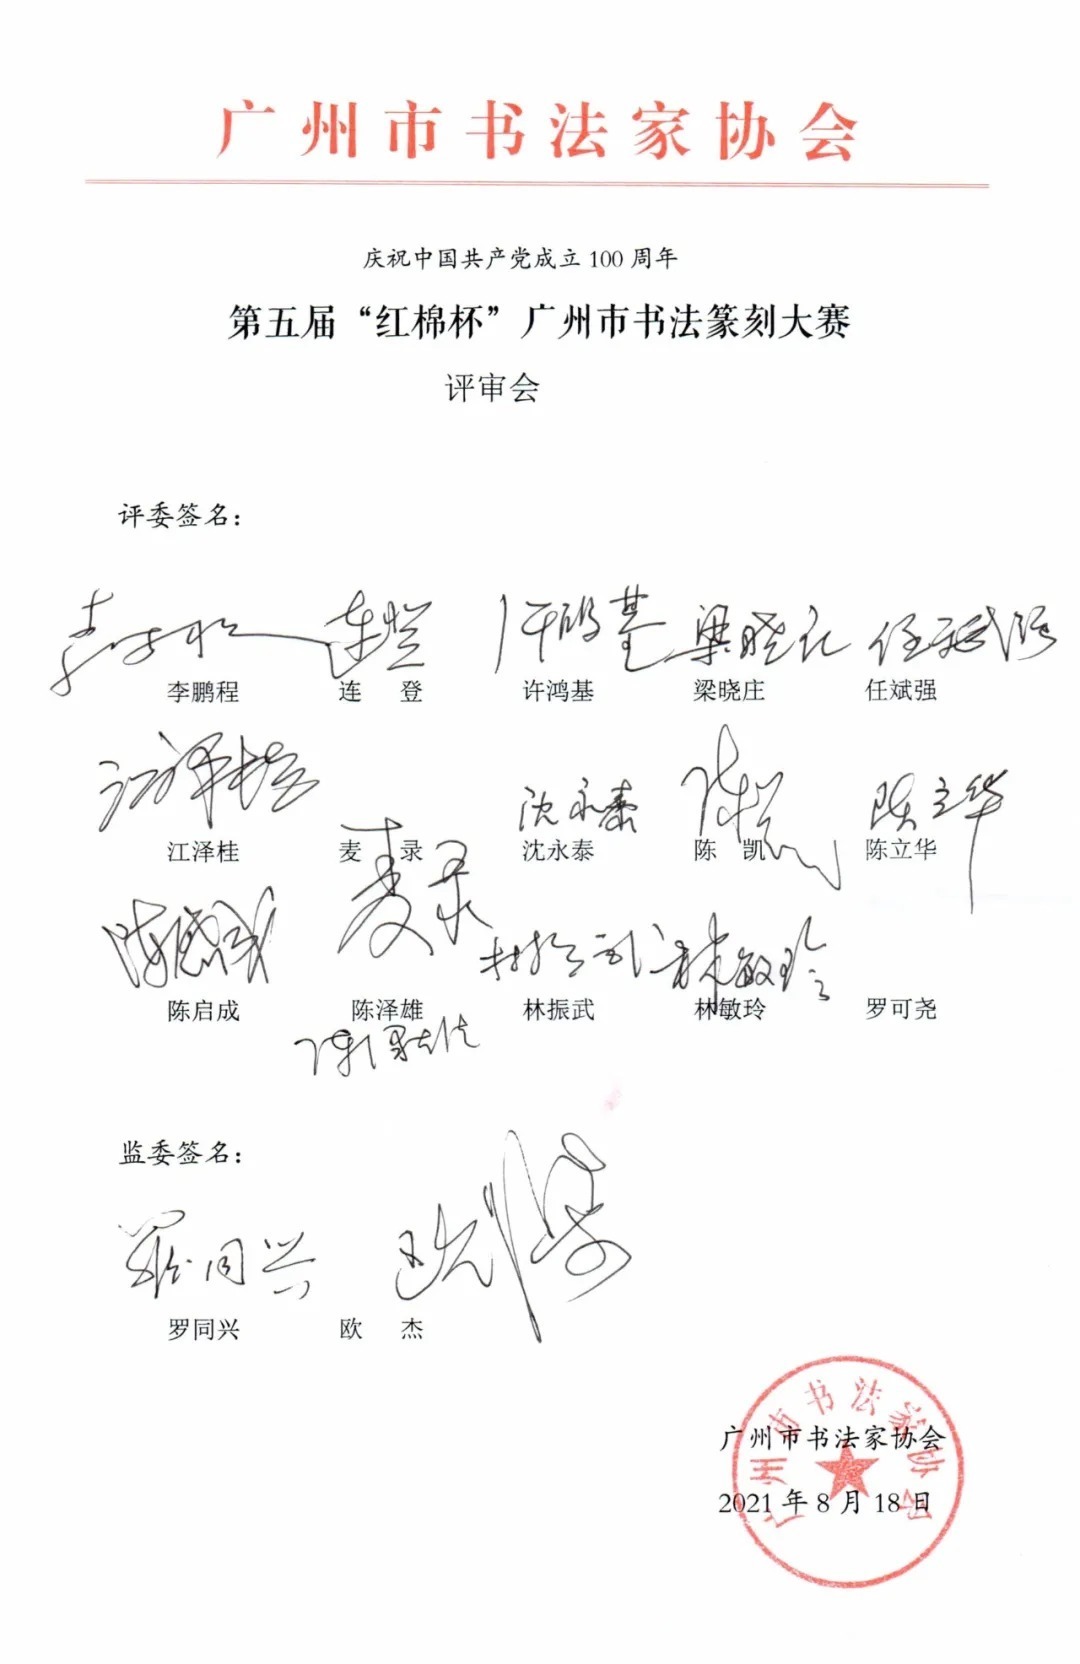 广州市书法家协会
庆祝中国共产党成立100周年
第五届“红棉杯”广州市书法篆刻大赛
评审会
评委签名：
李鹏程 连登 许鸿基 梁晓庄 任斌强
李鹏程 连 登 许鸿基 梁晓庄 任斌强
江泽桂 沈永泰 陈凯 陈立华
江泽桂 麦 录 沈永泰 陈 凯 陈立华
麦录
陈启成 林振武 林敏玲
陈启成 陈泽雄 林振武 林敏玲 罗可尧
陈泽雄
监委签名：
罗同兴 欧杰
罗同兴 欧 杰
广州市书法家协会
广州市书法家协会
2021年8月18日